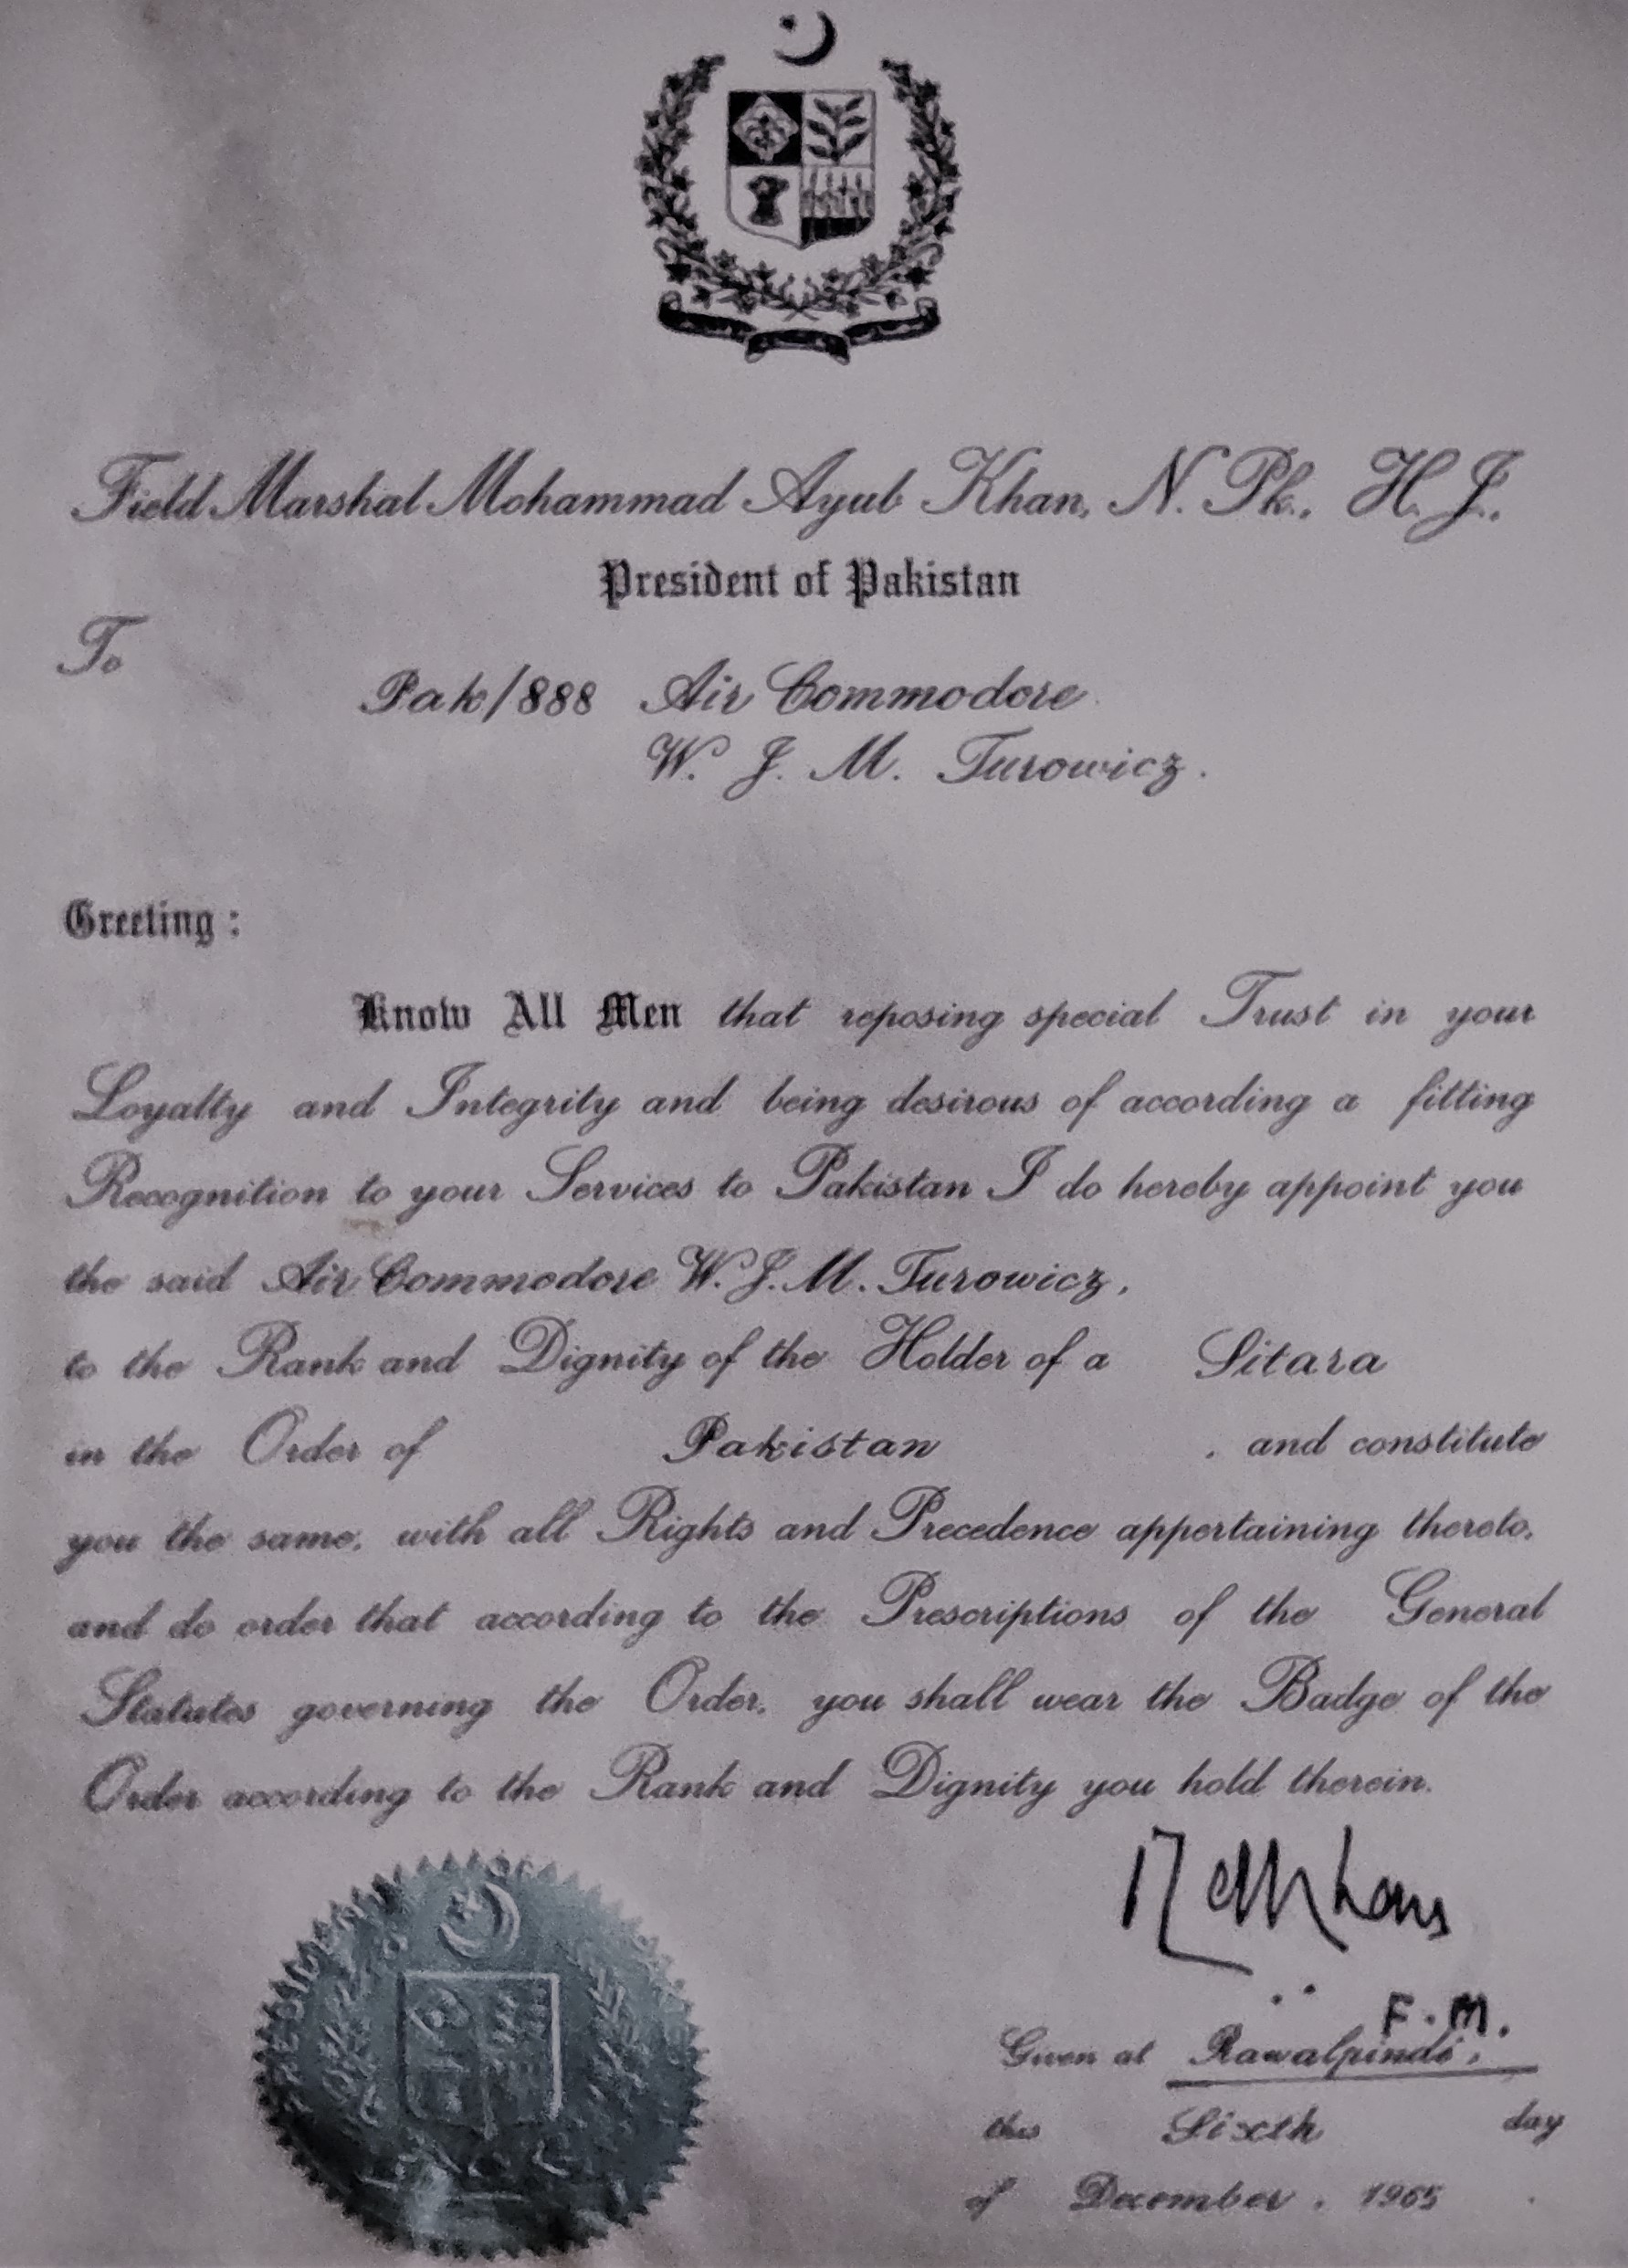 Field Marshal Mohammad Ayub Khan, N. Pk., H. J.,
President of Pakistan
To
Pak/888 Air Commodore
W. J. M. Turowicz.
Greeting:
Know All Men that reposing special Trust in your
Loyalty and Integrity and being desirous of according a fitting
Recognition to your Services to Pakistan I do hereby appoint you
the said Air Commodore W. J. M. Turowicz,
to the Rank and Dignity of the Holder of a Sitara
in the Order of Pakistan , and constitute
you the same, with all Rights and Precedence appertaining thereto,
and do order that according to the Prescriptions of the General
Statutes governing the Order, you shall wear the Badge of the
Order according to the Rank and Dignity you hold therein.
F. M.
Given at Rawalpindi,
this Sixth day
of December, 1965